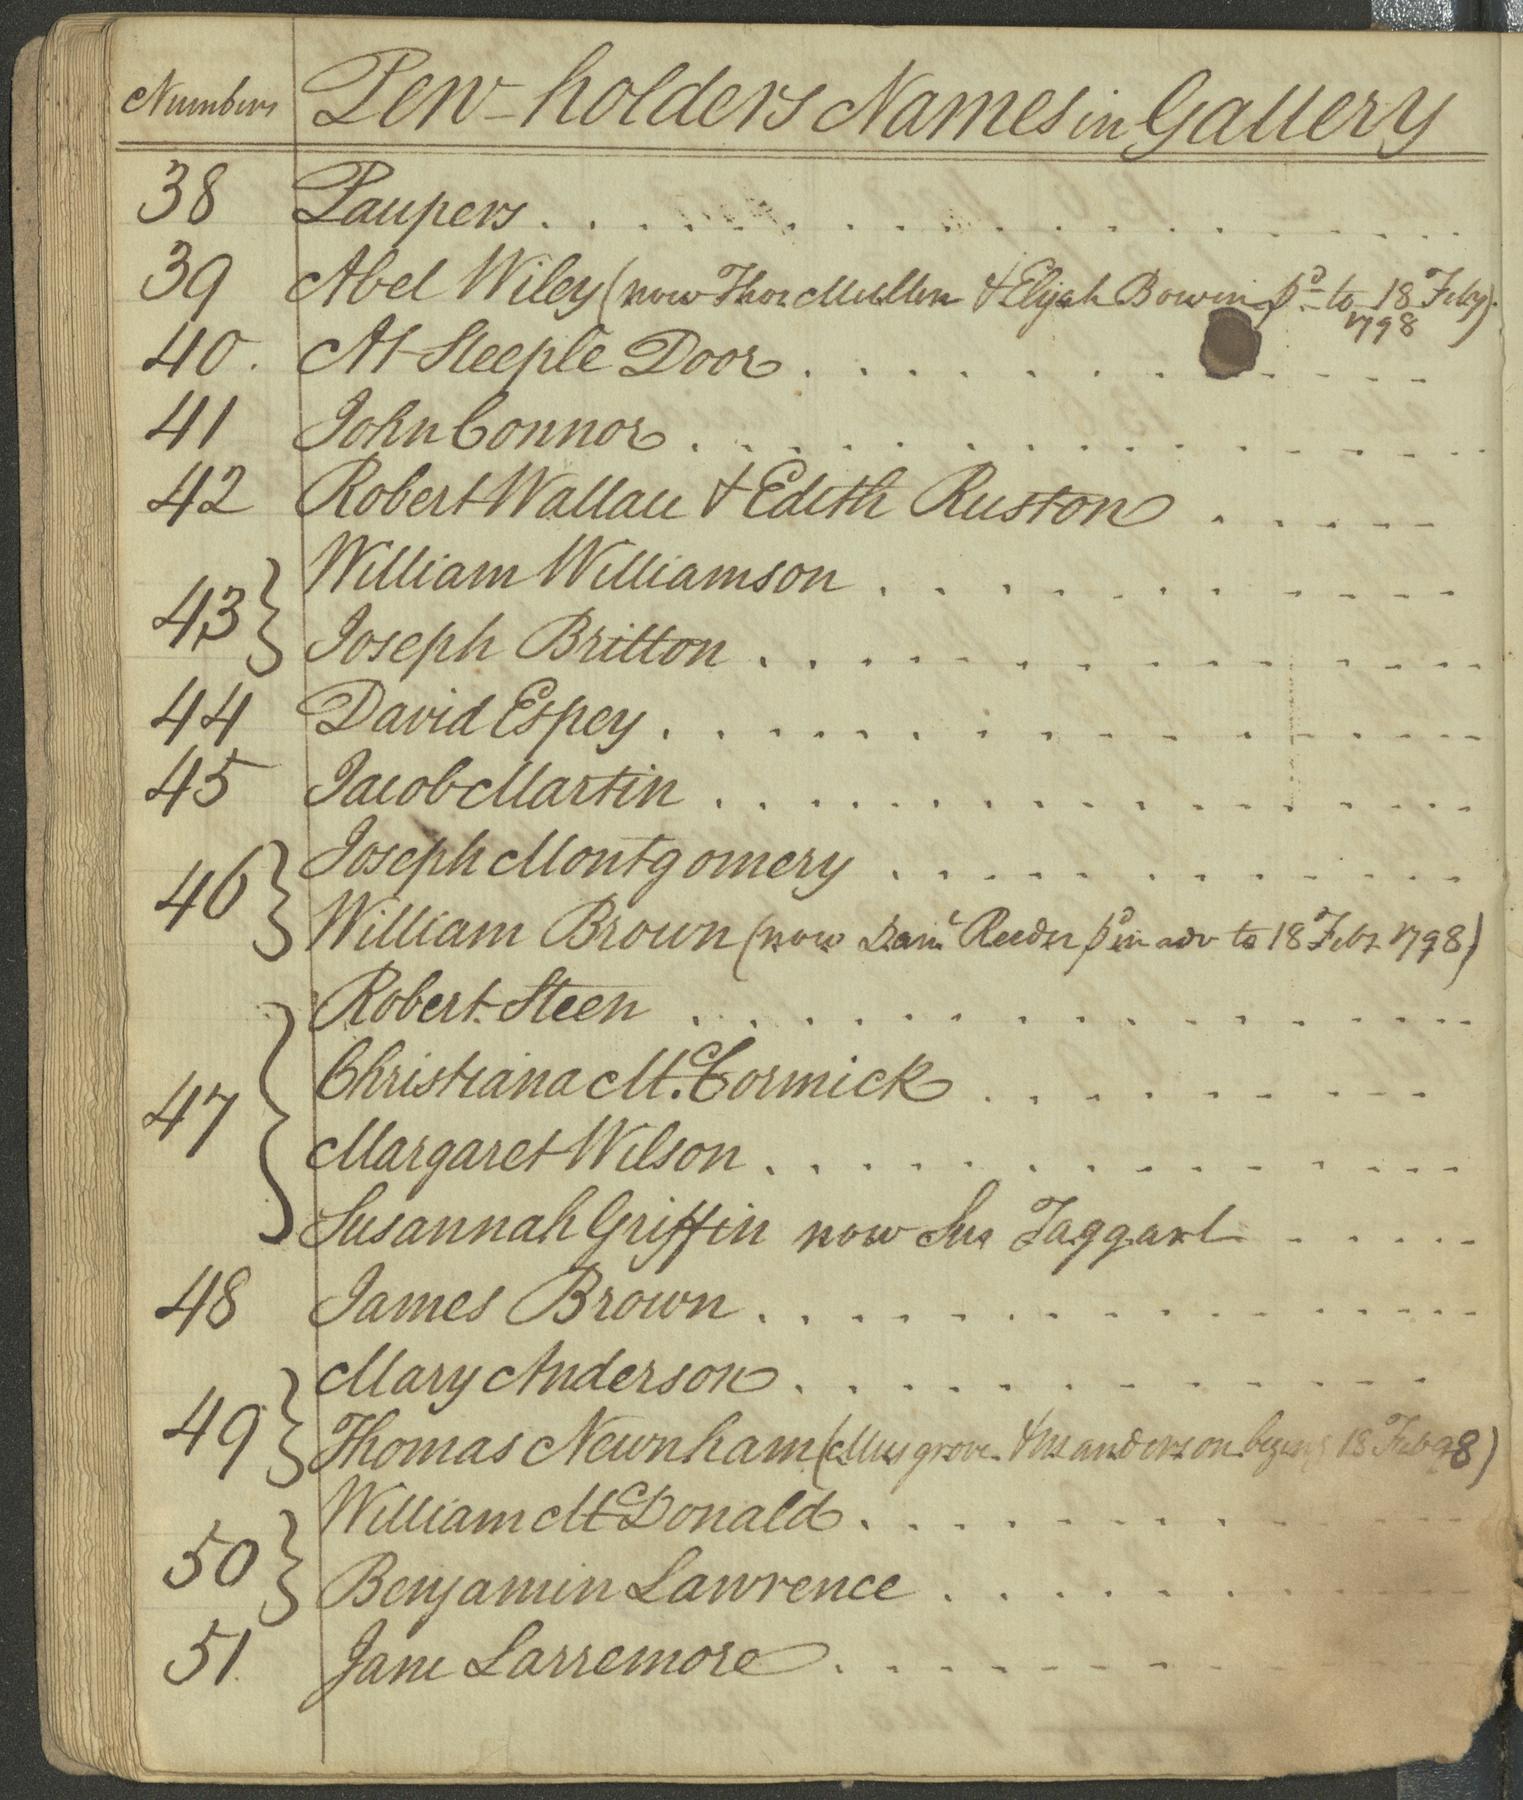 Numbers Pew-holders Names in Gallery
38 Paupers
39 Abel Wiley (now Thos McMullen & Elijah Bowen pd to 18 Feby)
1798
40. At Steeple Door
41 John Connor
42 Robert Wallace & Edith Ruston
William Williamson
43
Joseph Britton
44 David Espey
45 Jacob Martin
Joseph Montgomery
46
William Brown (now Danl Reeder pd in adv to 18 Feby 1798)
Robert Steen
Christiana Mc.Cormick
47
Margaret Wilson
Susannah Griffin now Sus Taggart
48 James Brown
Mary Anderson
49
Thomas Newnham (Musgrove & Ms anderson begins 18 Feb 98)
William McDonald
50
Benjamin Lawrence
51. Jane Larremore